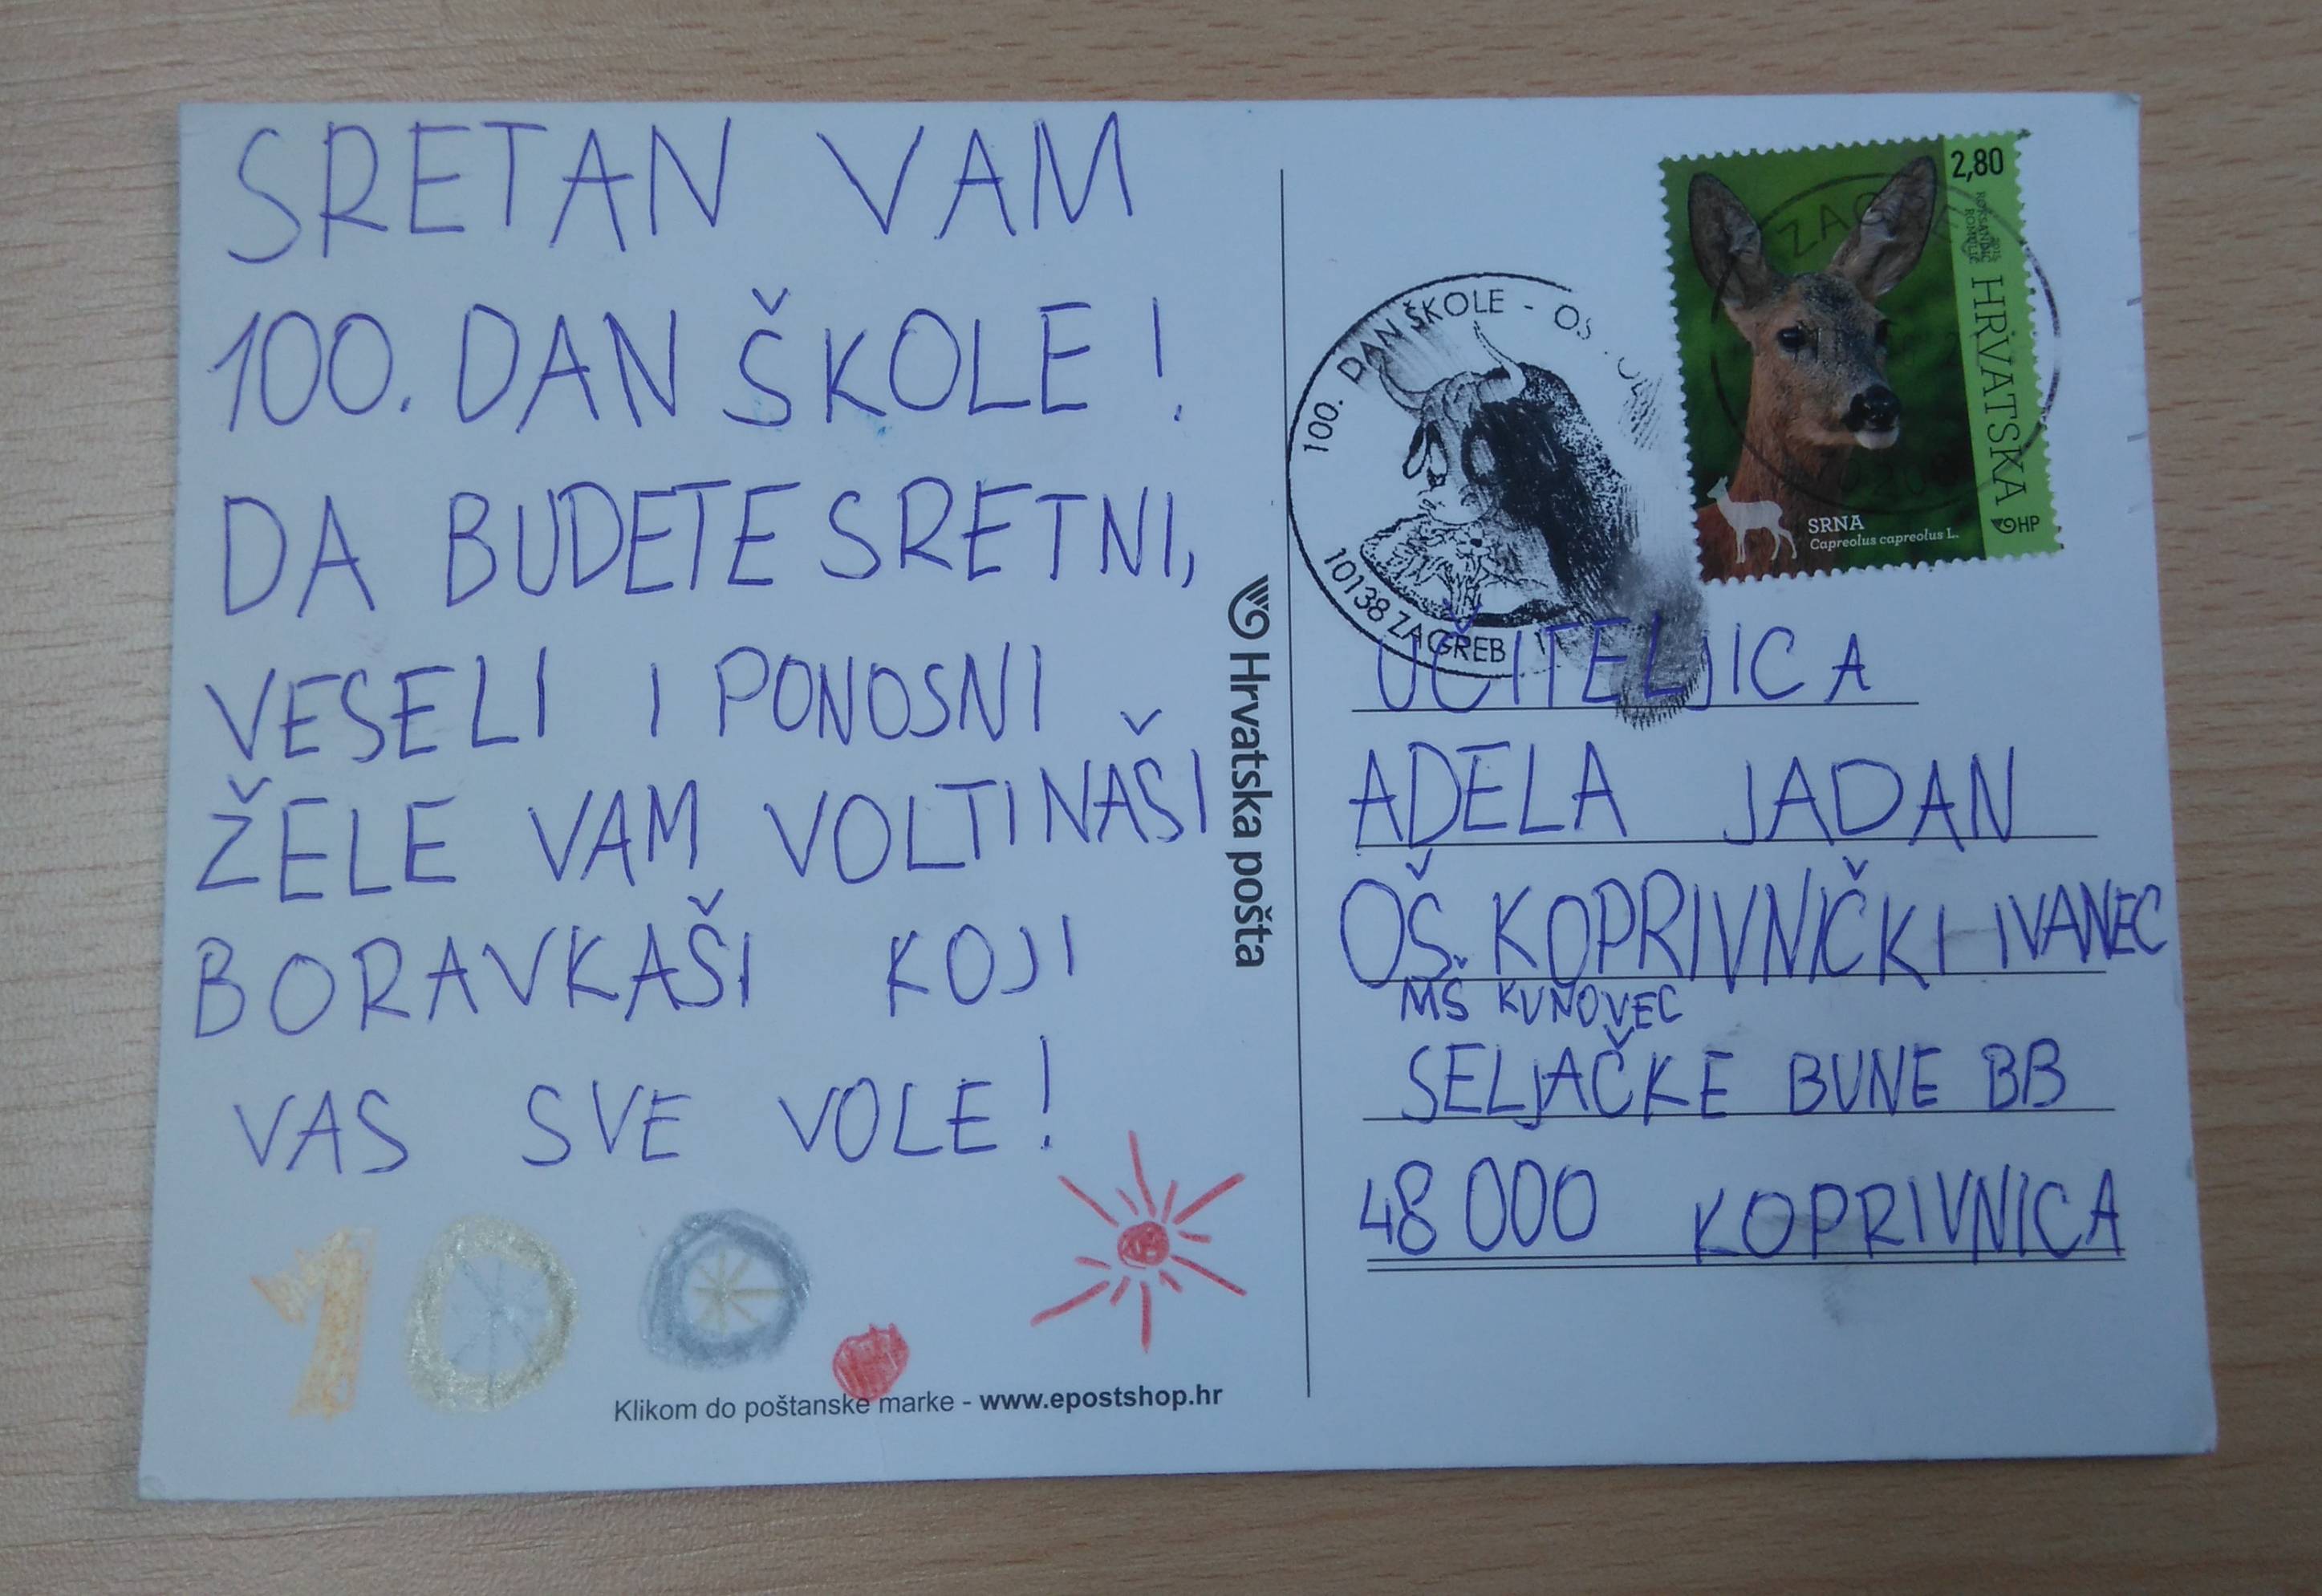 SRETAN VAM
100. DAN ŠKOLE!
DA BUDETE SRETNI,
VESELI I PONOSNI
ŽELE VAM VOLTINAŠI
BORAVKAŠI KOJI
VAS SVE VOLE!
100.
Klikom do poštanske marke - www.epostshop.hr
Hrvatska pošta
100. DAN ŠKOLE - OŠ
10138 ZAGREB
ZAGREB
2,80
HRVATSKA
HP
SRNA
Capreolus capreolus L.
UČITELJICA
ADELA JADAN
OŠ. KOPRIVNIČKI IVANEC
MŠ KUNOVEC
SELJAČKE BUNE BB
48000 KOPRIVNICA